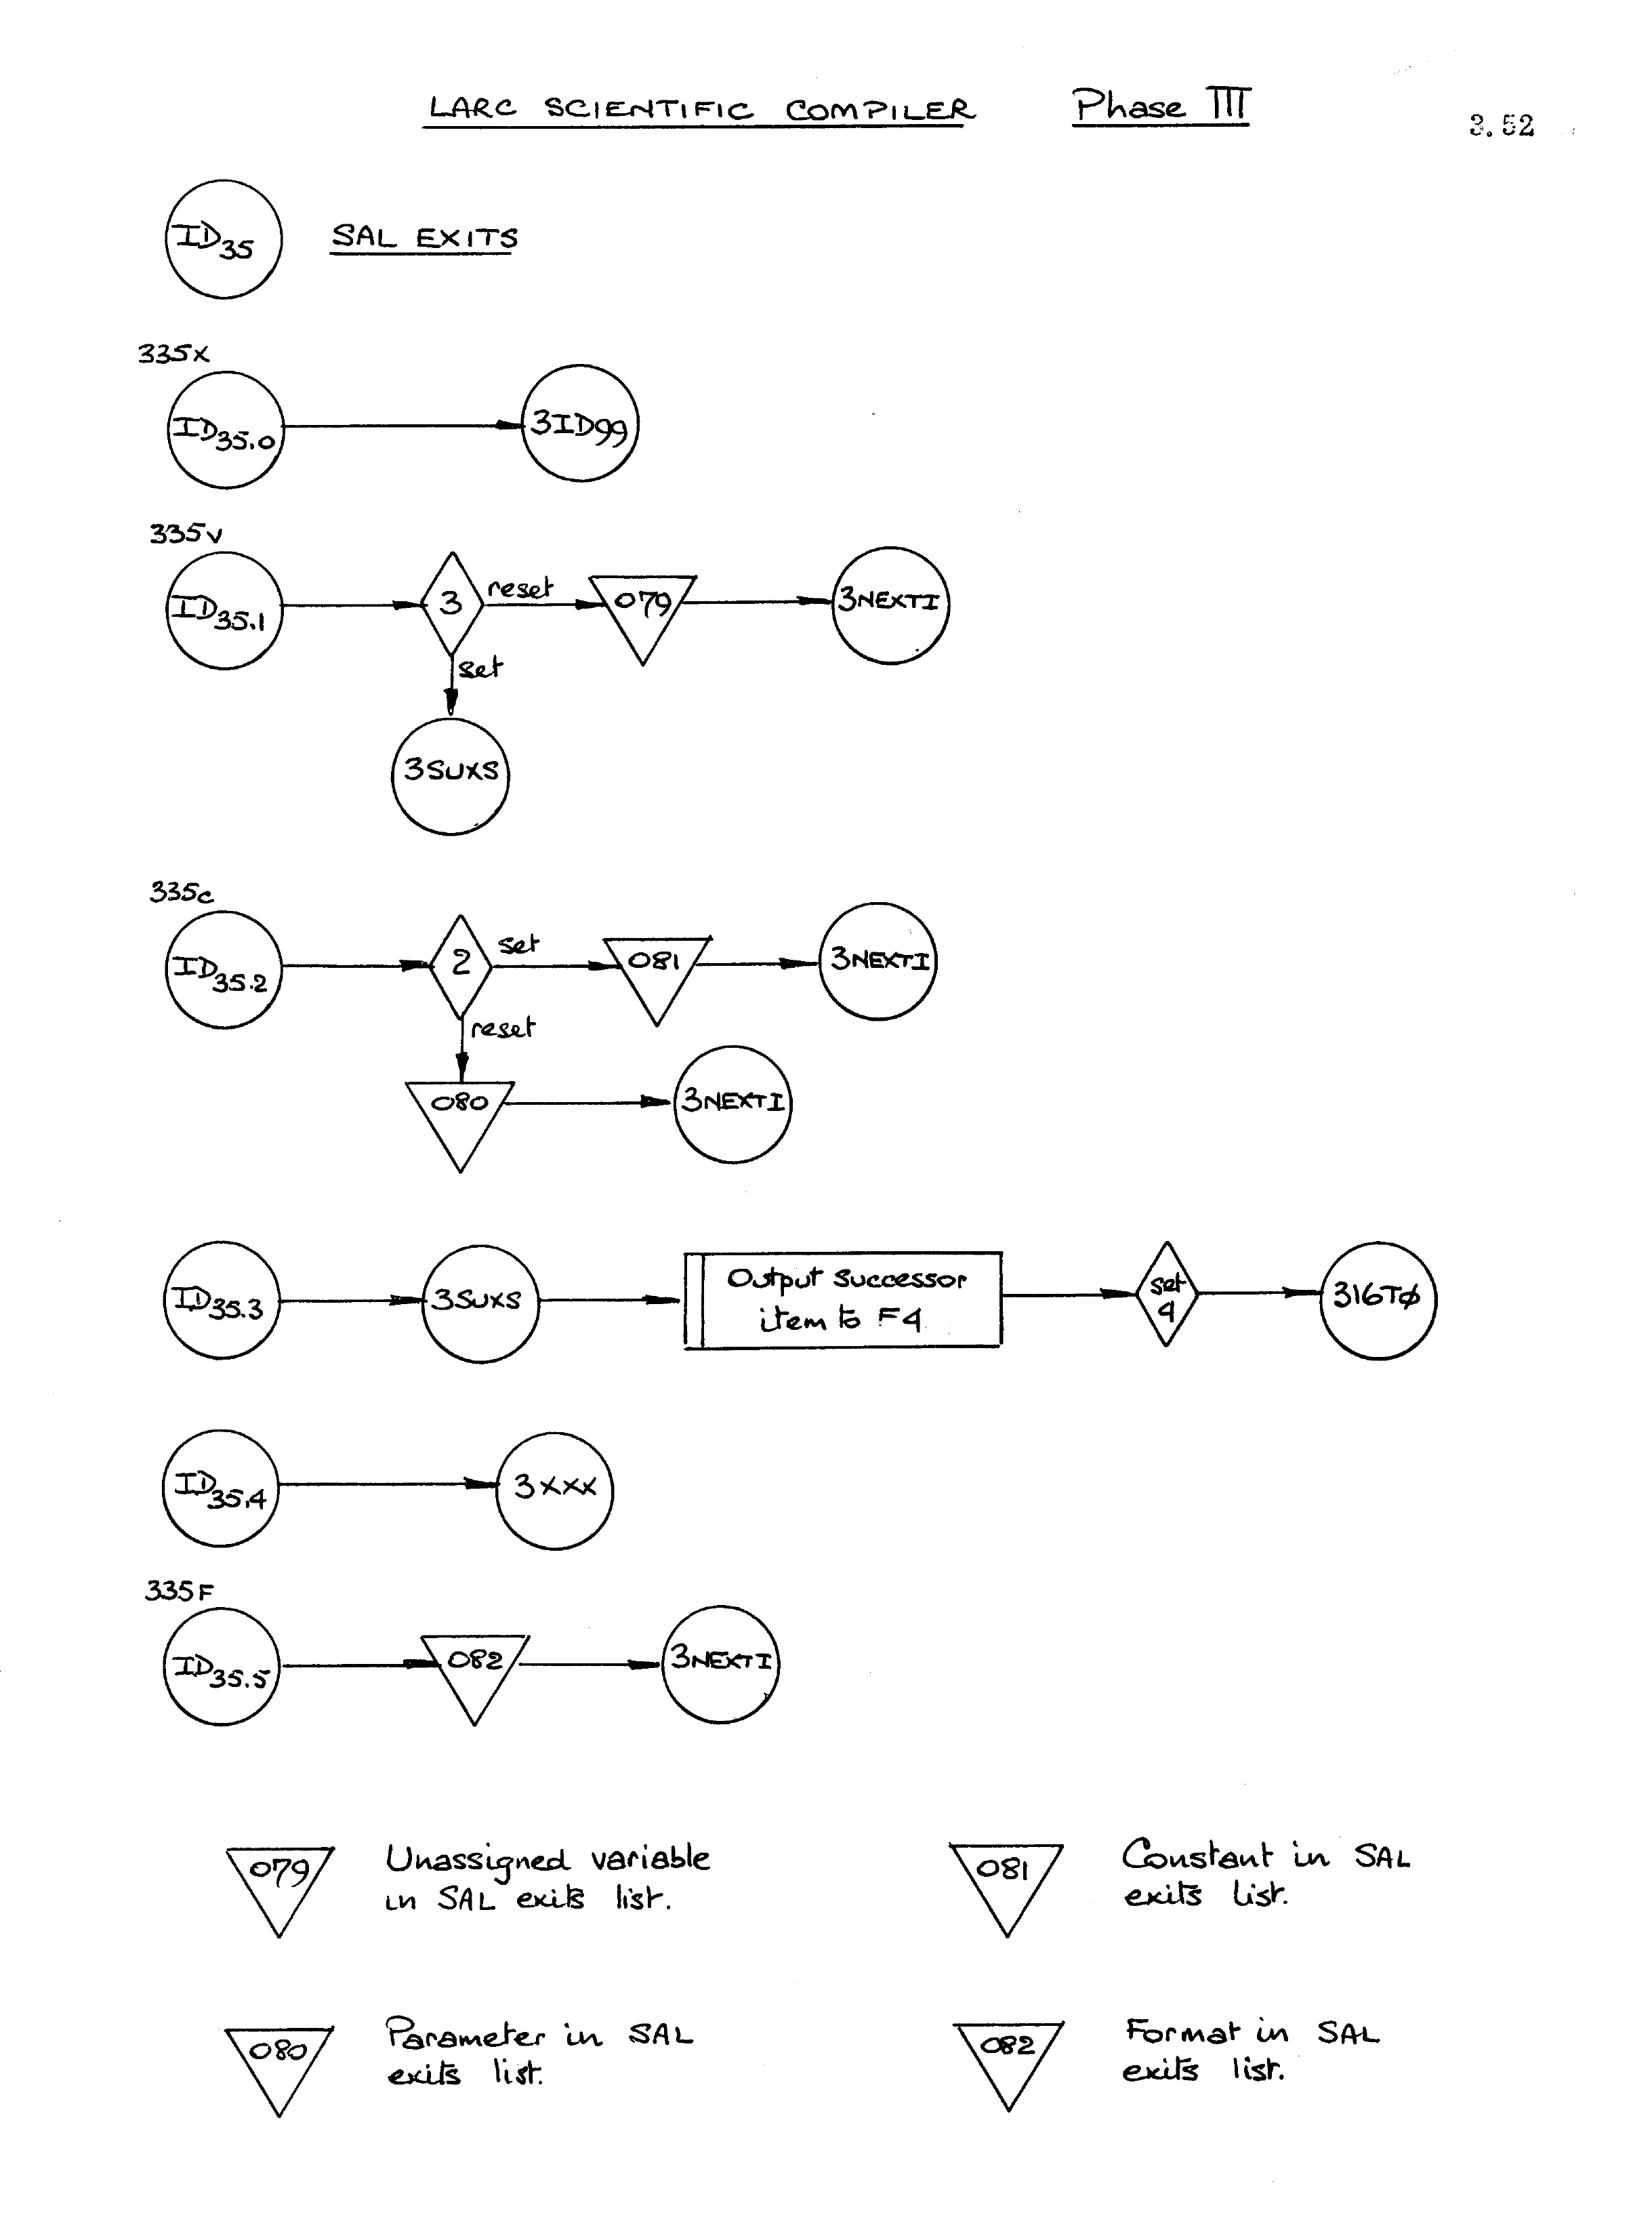 LARC SCIENTIFIC COMPILER Phase III
3.52
ID35 SAL EXITS
335X
ID35.0 3ID99
335V
ID35.1 3 reset 079 3NEXTI
set
3SUXS
335C
ID35.2 2 set 081 3NEXTI
reset
080 3NEXTI
ID35.3 3SUXS Output Successor set 316TØ
item to F4 4
ID35.4 3XXX
335F
ID35.5 082 3NEXTI
079 Unassigned variable
in SAL exits list.
081 Constant in SAL
exits list.
080 Parameter in SAL
exits list.
082 Format in SAL
exits list.